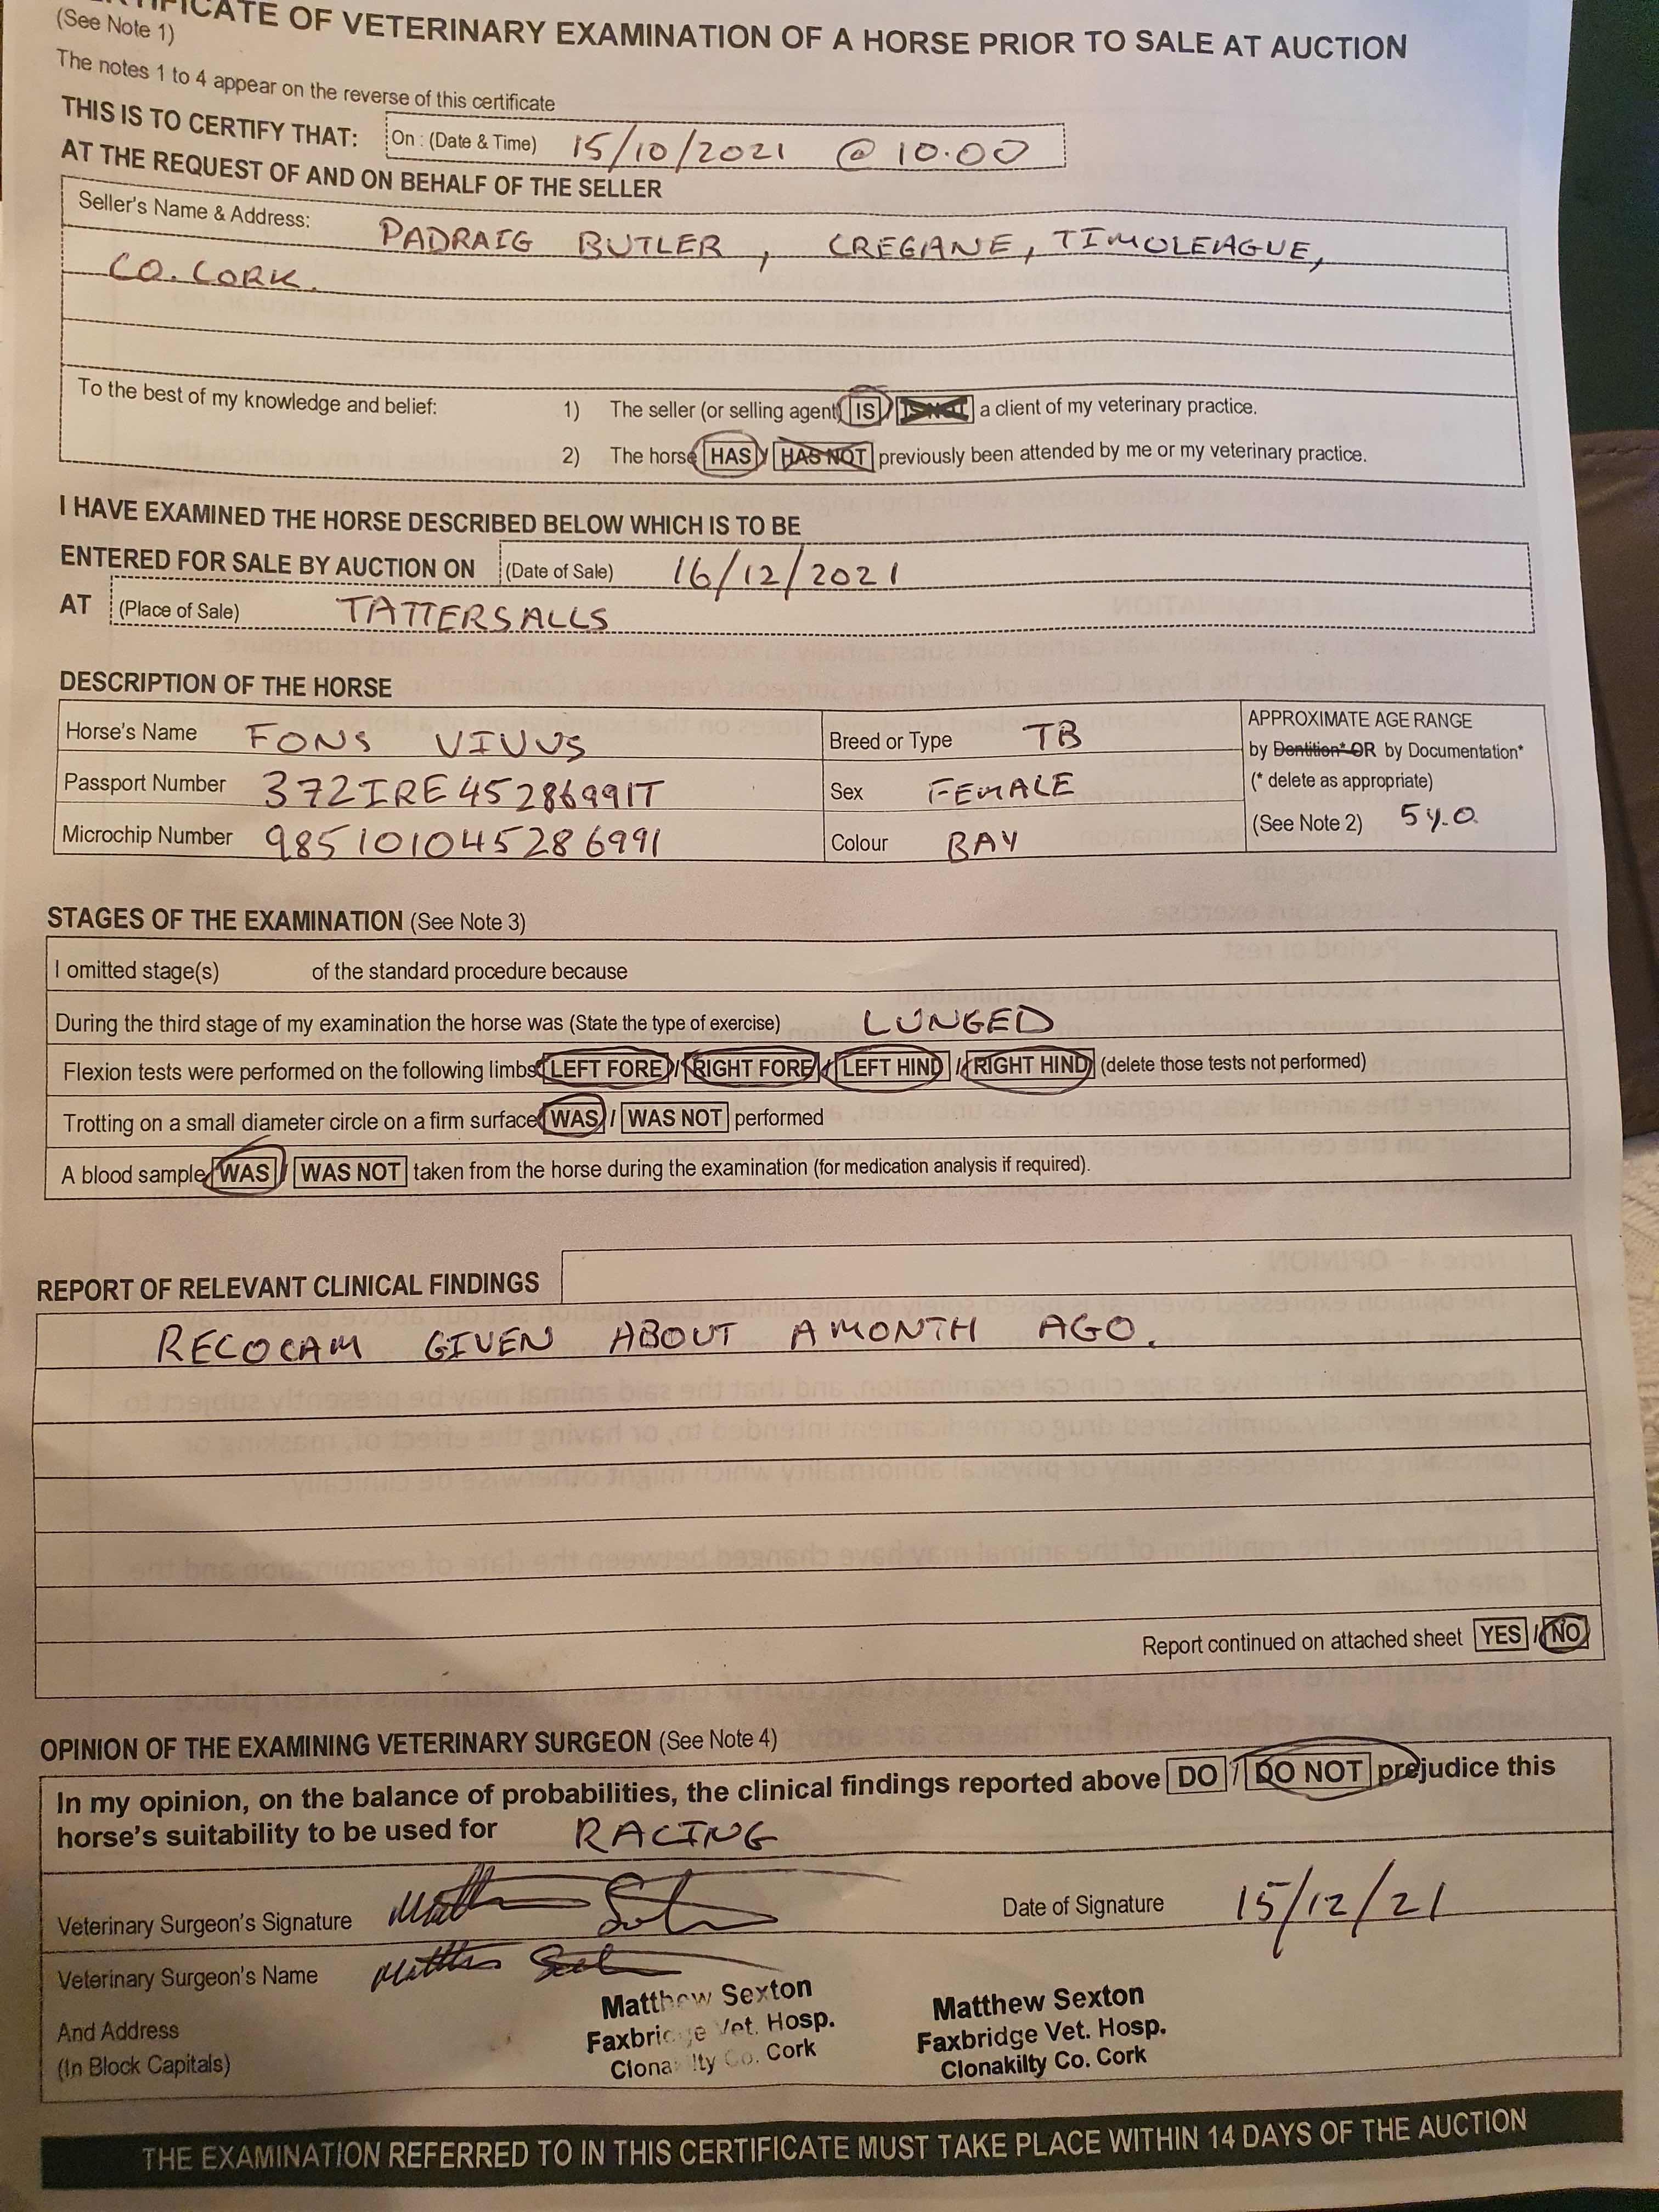 CERTIFICATE OF VETERINARY EXAMINATION OF A HORSE PRIOR TO SALE AT AUCTION
(See Note 1)
The notes 1 to 4 appear on the reverse of this certificate
THIS IS TO CERTIFY THAT: On : (Date & Time) 15/10/2021 @ 10.00
AT THE REQUEST OF AND ON BEHALF OF THE SELLER
Seller's Name & Address: PADRAIG BUTLER, CREGANE, TIMOLEAGUE,
CO. CORK.
To the best of my knowledge and belief: 1) The seller (or selling agent) IS / IS NOT a client of my veterinary practice.
2) The horse HAS / HAS NOT previously been attended by me or my veterinary practice.
I HAVE EXAMINED THE HORSE DESCRIBED BELOW WHICH IS TO BE
ENTERED FOR SALE BY AUCTION ON (Date of Sale) 16/12/2021
AT (Place of Sale) TATTERSALLS
DESCRIPTION OF THE HORSE
Horse's Name FONS VIVUS Breed or Type TB APPROXIMATE AGE RANGE
by Dentition* OR by Documentation*
Passport Number 372IRE45286991T Sex FEMALE (* delete as appropriate)
Microchip Number 985101045286991 Colour BAY (See Note 2) 5y.o.
STAGES OF THE EXAMINATION (See Note 3)
I omitted stage(s) of the standard procedure because
During the third stage of my examination the horse was (State the type of exercise) LUNGED
Flexion tests were performed on the following limbs LEFT FORE / RIGHT FORE / LEFT HIND / RIGHT HIND (delete those tests not performed)
Trotting on a small diameter circle on a firm surface WAS / WAS NOT performed
A blood sample WAS / WAS NOT taken from the horse during the examination (for medication analysis if required).
REPORT OF RELEVANT CLINICAL FINDINGS
RECOCAM GIVEN ABOUT A MONTH AGO.
Report continued on attached sheet YES / NO
OPINION OF THE EXAMINING VETERINARY SURGEON (See Note 4)
In my opinion, on the balance of probabilities, the clinical findings reported above DO / DO NOT prejudice this
horse's suitability to be used for RACING
Veterinary Surgeon's Signature Date of Signature 15/12/21
Veterinary Surgeon's Name
And Address
(In Block Capitals)
Matthew Sexton
Faxbridge Vet. Hosp.
Clonakilty Co. Cork
Matthew Sexton
Faxbridge Vet. Hosp.
Clonakilty Co. Cork
THE EXAMINATION REFERRED TO IN THIS CERTIFICATE MUST TAKE PLACE WITHIN 14 DAYS OF THE AUCTION